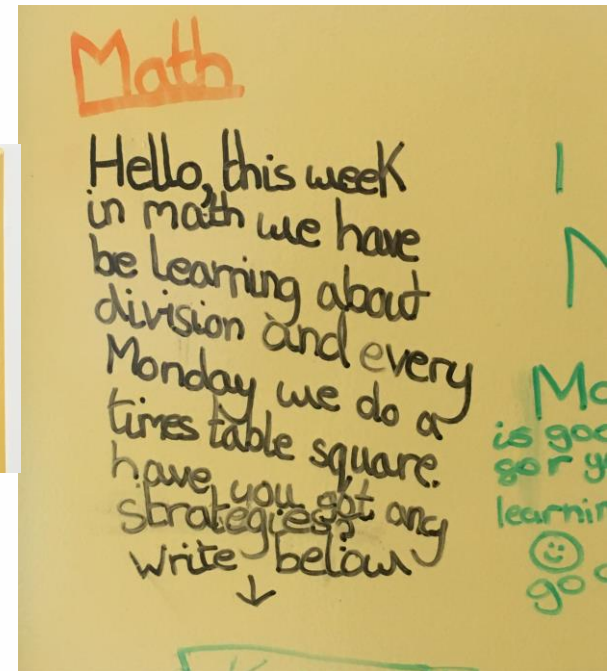 Math
Hello, this week
in math we have
be learning about
division and every
Monday we do a
times table square.
have you got any
strategies?
write below
↓
I
is
for